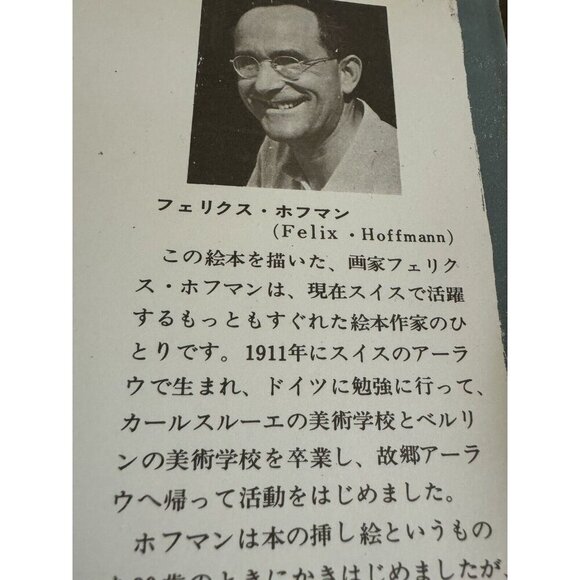 フェリクス・ホフマン
(Felix・Hoffmann)
この絵本を描いた、画家フェリク
ス・ホフマンは、現在スイスで活躍
するもっともすぐれた絵本作家のひ
とりです。1911年にスイスのアーラ
ウで生まれ、ドイツに勉強に行って、
カールスルーエの美術学校とベルリ
ンの美術学校を卒業し、故郷アーラ
ウへ帰って活動をはじめました。
ホフマンは本の挿し絵というもの
のときにかきはじめましたが、